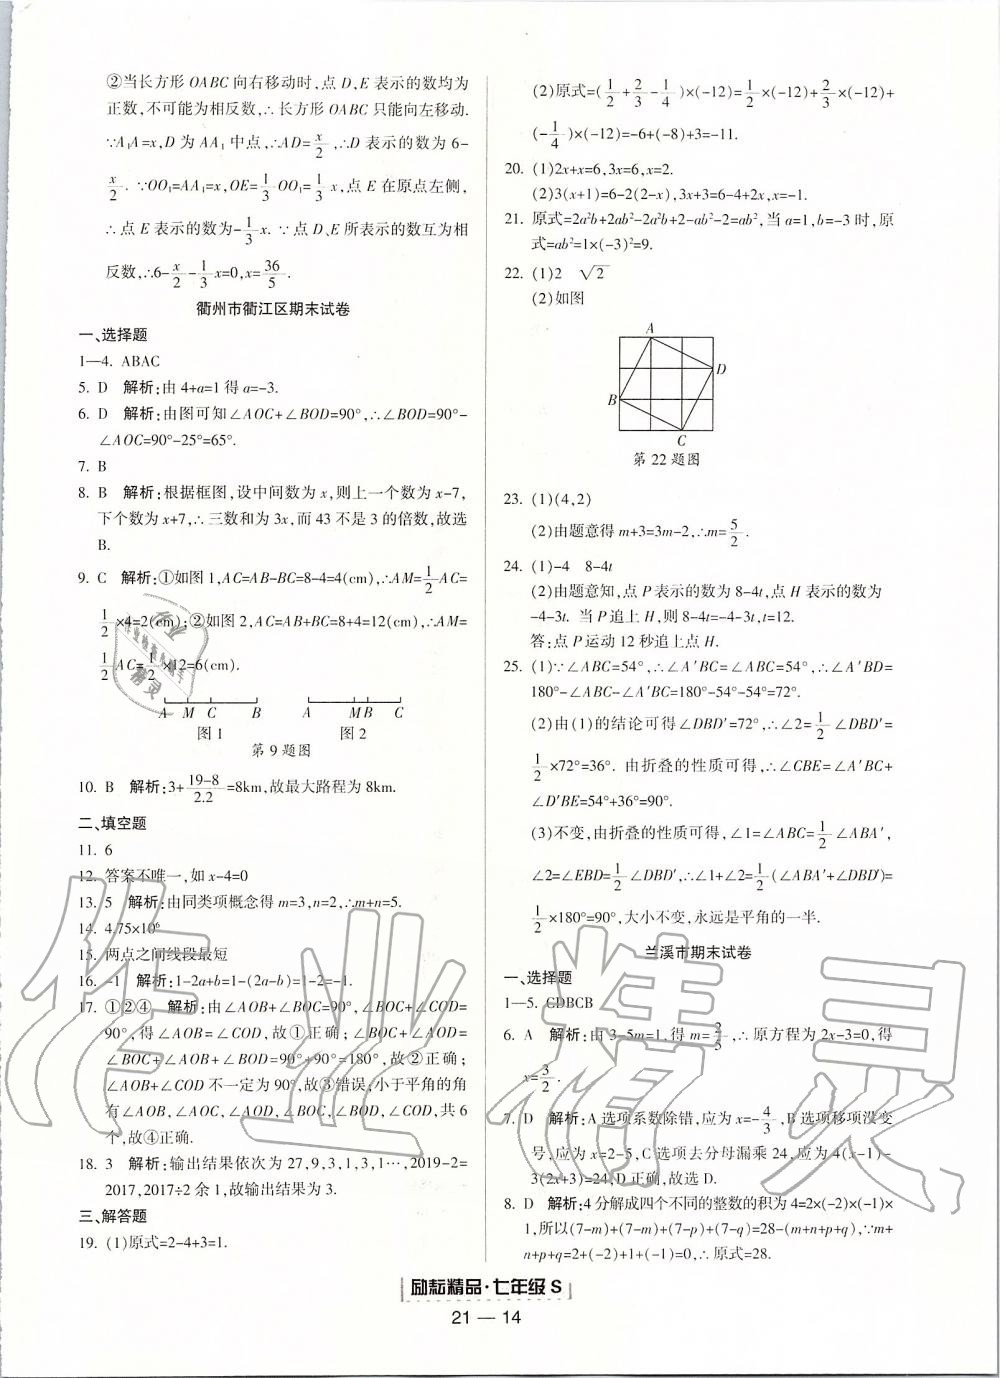 ②当长方形 OABC 向右移动时,点 D、E 表示的数均为
正数,不可能为相反数,∴长方形 OABC 只能向左移动.
∵A₁A=x,D 为 AA₁ 中点,∴AD=x/2,∴D 表示的数为 6-
x/2. ∵OO₁=AA₁=x,OE=1/3 OO₁=1/3 x,点 E 在原点左侧,
∴点 E 表示的数为-1/3 x. ∵点 D、E 所表示的数互为相
反数,∴6-x/2-1/3 x=0,x=36/5.
衢州市衢江区期末试卷
一、选择题
1—4. ABAC
5. D 解析:由 4+a=1 得 a=-3.
6. D 解析:由图可知∠AOC+∠BOD=90°,∴∠BOD=90°-
∠AOC=90°-25°=65°.
7. B
8. B 解析:根据框图,设中间数为 x,则上一个数为 x-7,
下个数为 x+7,∴三数和为 3x,而 43 不是 3 的倍数,故选
B.
9. C 解析:①如图 1,AC=AB-BC=8-4=4(cm),∴AM=1/2 AC=
1/2×4=2(cm);②如图 2,AC=AB+BC=8+4=12(cm),∴AM=
1/2 AC=1/2×12=6(cm).
A M C B A M B C
图 1 图 2
第 9 题图
10. B 解析:3+(19-8)/2.2=8km,故最大路程为 8km.
二、填空题
11. 6
12. 答案不唯一,如 x-4=0
13. 5 解析:由同类项概念得 m=3,n=2,∴m+n=5.
14. 4.75×10⁶
15. 两点之间线段最短
16. -1 解析:1-2a+b=1-(2a-b)=1-2=-1.
17. ①②④ 解析:由∠AOB+∠BOC=90°,∠BOC+∠COD=
90°,得∠AOB=∠COD,故①正确;∠AOB+∠BOC+
∠BOC+∠COD=∠AOD+∠BOC=90°+90°=180°,故②正确;
∠AOB+∠COD 不一定为 90°,故③错误,小于平角的角
有∠AOB,∠AOC,∠AOD,∠BOC,∠BOD,∠COD,共 6
个,故④正确.
18. 3 解析:输出结果依次为 27,9,3,1,3,1…,2019-2=
2017,2017÷2 余 1,故输出结果为 3.
三、解答题
19. (1)原式=2-4+3=1.
(2)原式=(1/2+2/3-1/4)×(-12)=1/2×(-12)+2/3×(-12)+
(-1/4)×(-12)=-6+(-8)+3=-11.
20. (1)2x+x=6,3x=6,x=2.
(2)3(x+1)=6-2(2-x),3x+3=6-4+2x,x=-1.
21. 原式=2a²b+2ab²-2a²b+2-ab²-2=ab²,当 a=1,b=-3 时,原
式=ab²=1×(-3)²=9.
22. (1)2 √2
(2)如图
A
D
B
C
第 22 题图
23. (1)(4,2)
(2)由题意得 m+3=3m-2,∴m=5/2.
24. (1)-4 8-4t
(2)由题意知,点 P 表示的数为 8-4t,点 H 表示的数为
-4-3t. 当 P 追上 H,则 8-4t=-4-3t,t=12.
答:点 P 运动 12 秒追上点 H.
25. (1)∵∠ABC=54°,∴∠A′BC=∠ABC=54°,∴∠A′BD=
180°-∠ABC-∠A′BC=180°-54°-54°=72°.
(2)由(1)的结论可得∠DBD′=72°,∴∠2=1/2∠DBD′=
1/2×72°=36°. 由折叠的性质可得,∴∠CBE=∠A′BC+
∠D′BE=54°+36°=90°.
(3)不变,由折叠的性质可得,∠1=∠ABC=1/2∠ABA′,
∠2=∠EBD=1/2∠DBD′,∴∠1+∠2=1/2(∠ABA′+∠DBD′)=
1/2×180°=90°,大小不变,永远是平角的一半.
兰溪市期末试卷
一、选择题
1—5. CDBCB
6. A 解析:由 3-5m=1,得 m=2/5,∴原方程为 2x-3=0,得
x=3/2.
7. D 解析:A 选项系数除错,应为 x=-4/3,B 选项移项没变
号,应为 x=2-5,C 选项去分母漏乘 24,应为 4(x-1)-
3(2x+3)=24,D 正确,故选 D.
8. D 解析:4 分解成四个不同的整数的积为 4=2×(-2)×(-1)×
1,所以(7-m)+(7-m)+(7-p)+(7-q)=28-(m+n+p+q),∵m+
n+p+q=2+(-2)+1+(-1)=0,∴原式=28.
励耘精品·七年级 S
21 — 14
作业精灵